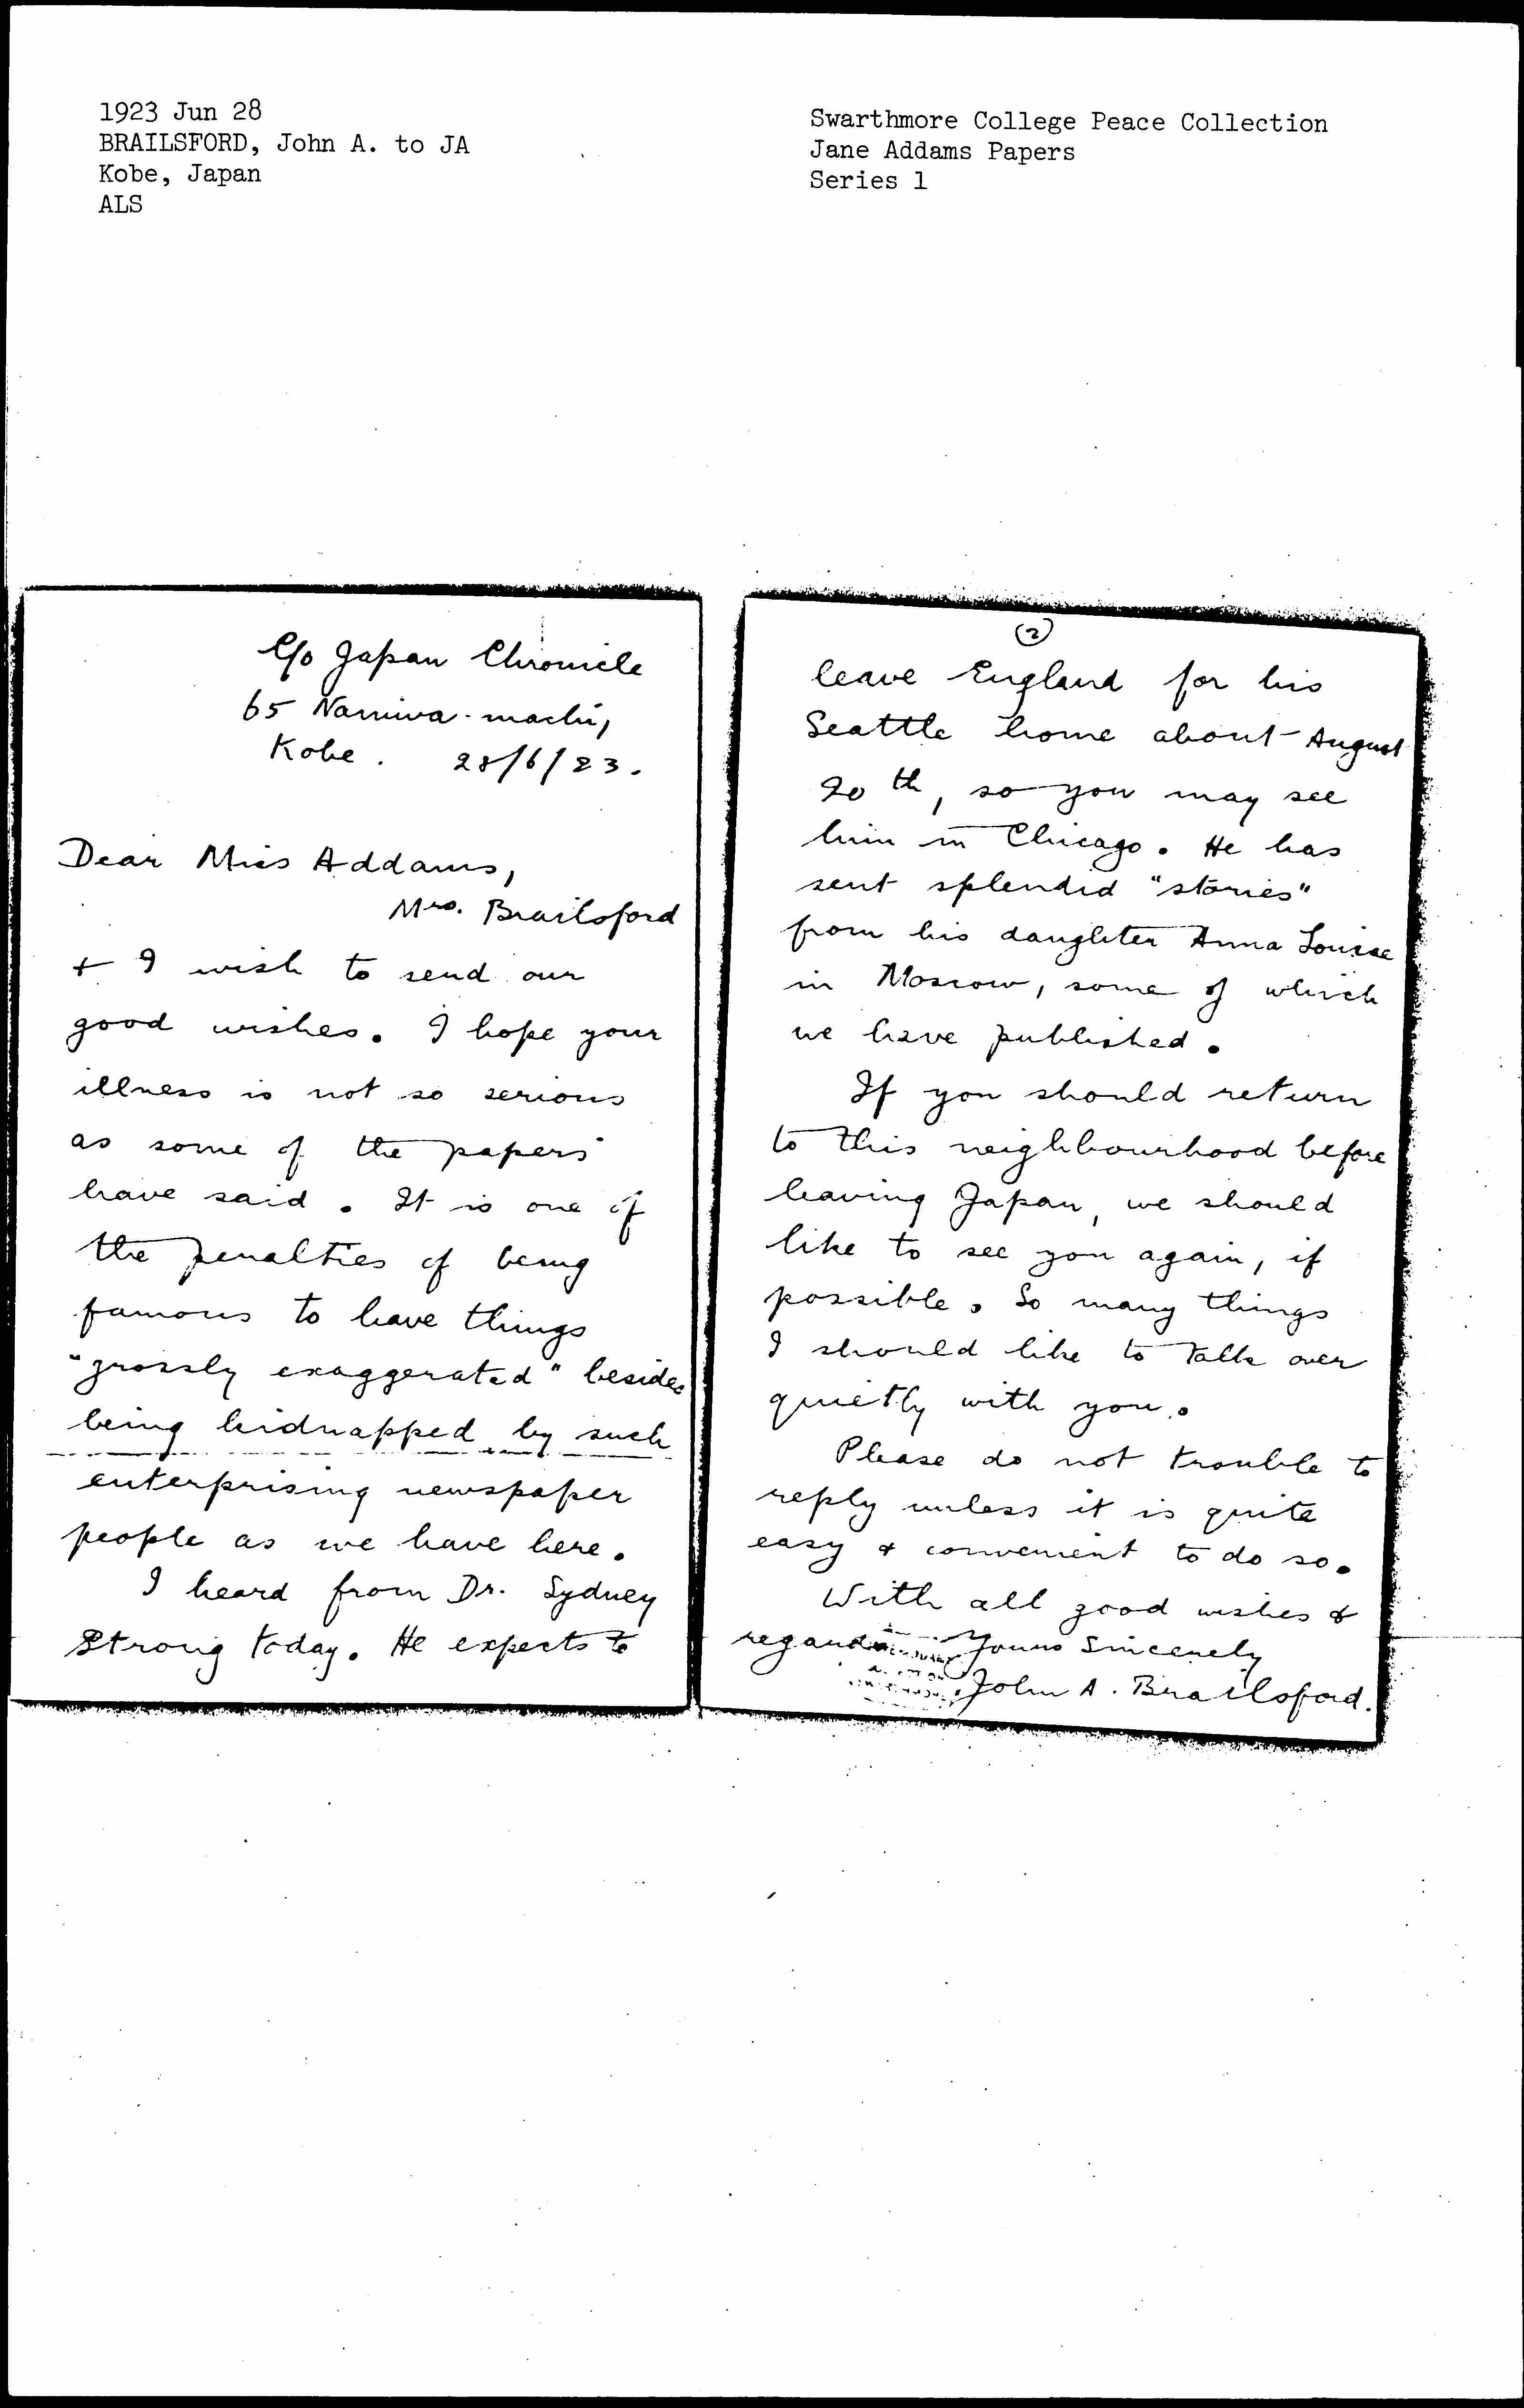 1923 Jun 28
BRAILSFORD, John A. to JA
Kobe, Japan
ALS
Swarthmore College Peace Collection
Jane Addams Papers
Series 1
C/o Japan Chronicle
65 Naniwa-machi,
Kobe. 28/6/23.
Dear Miss Addams,
Mrs. Brailsford
+ I wish to send our
good wishes. I hope your
illness is not so serious
as some of the papers
have said. It is one of
the penalties of being
famous to have things
"grossly exaggerated" besides
being kidnapped by such
enterprising newspaper
people as we have here.
I heard from Dr. Sydney
Strong today. He expects to
(2)
leave England for his
Seattle home about August
20th, so you may see
him in Chicago. He has
sent splendid "stories"
from his daughter Anna Louise
in Moscow, some of which
we have published.
If you should return
to this neighbourhood before
leaving Japan, we should
like to see you again, if
possible. So many things
I should like to talk over
quietly with you.
Please do not trouble to
reply unless it is quite
easy & convenient to do so.
With all good wishes &
regards Yours Sincerely
John A. Brailsford.